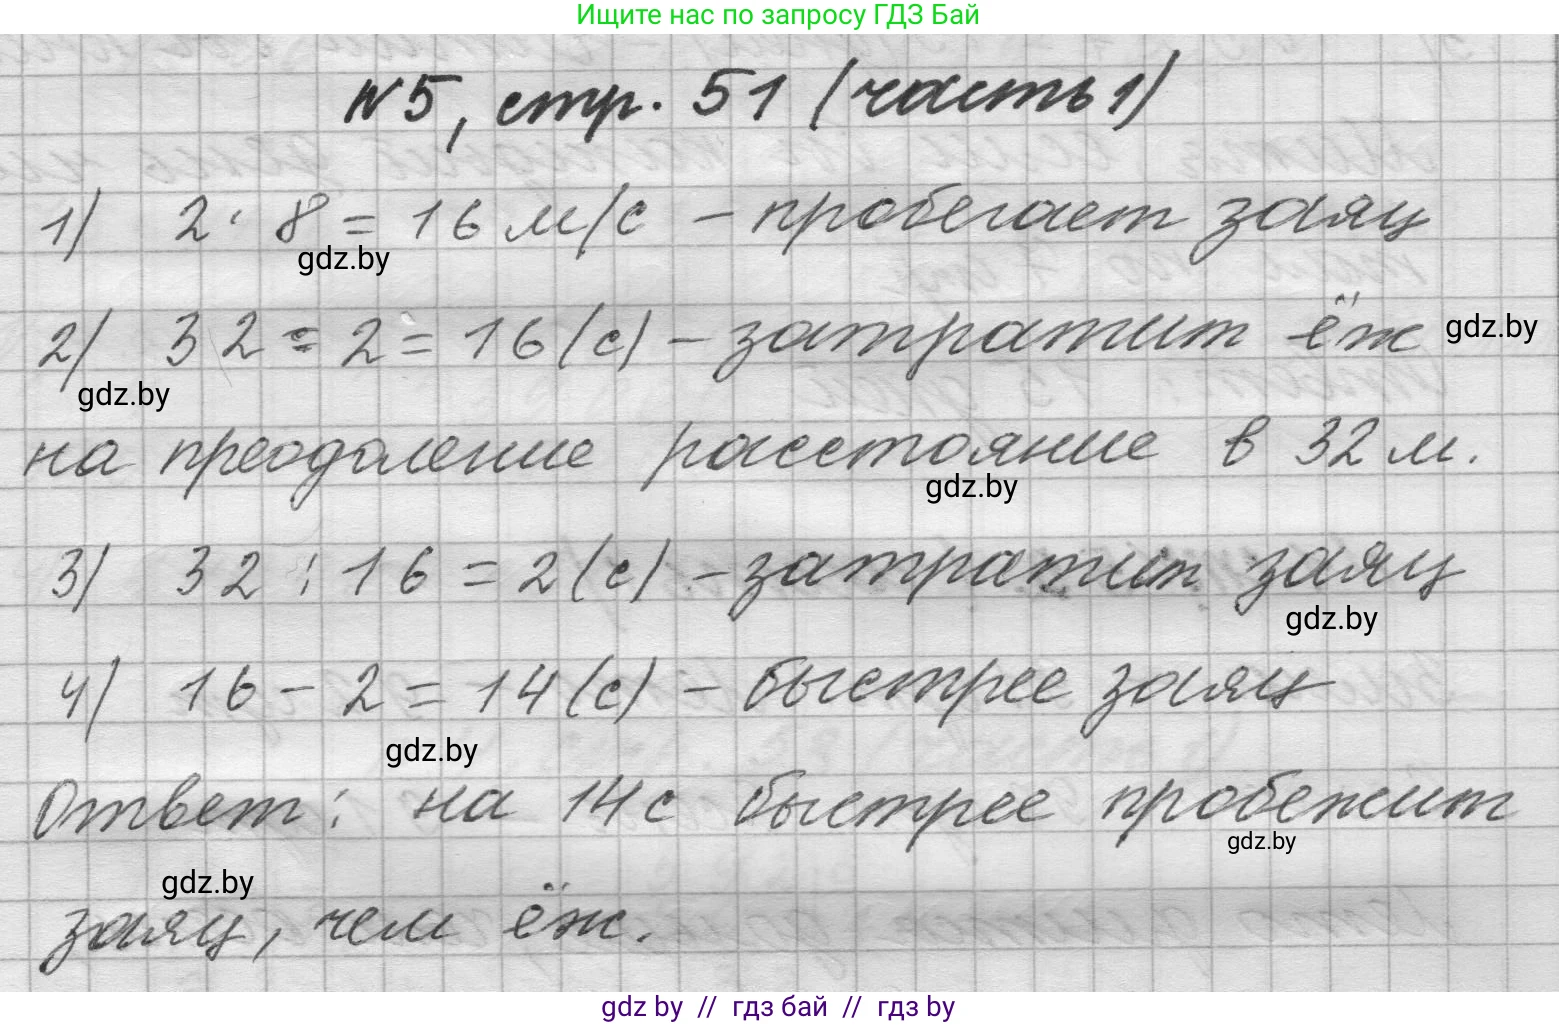 Ищите нас по запросу ГДЗ Бай
№5, стр. 51 (часть 1)
1) 2 · 8 = 16 м/с – пробегает заяц
gdz.by
2) 32 : 2 = 16 (с) – затратит ёж
gdz.by
gdz.by
на преодоление расстояние в 32 м.
gdz.by
3) 32 : 16 = 2 (с) – затратит заяц
gdz.by
4) 16 – 2 = 14 (с) – быстрее заяц
gdz.by
Ответ: на 14 с быстрее пробежит
gdz.by
gdz.by
заяц, чем ёж.
gdz by // гдз бай // гдз by